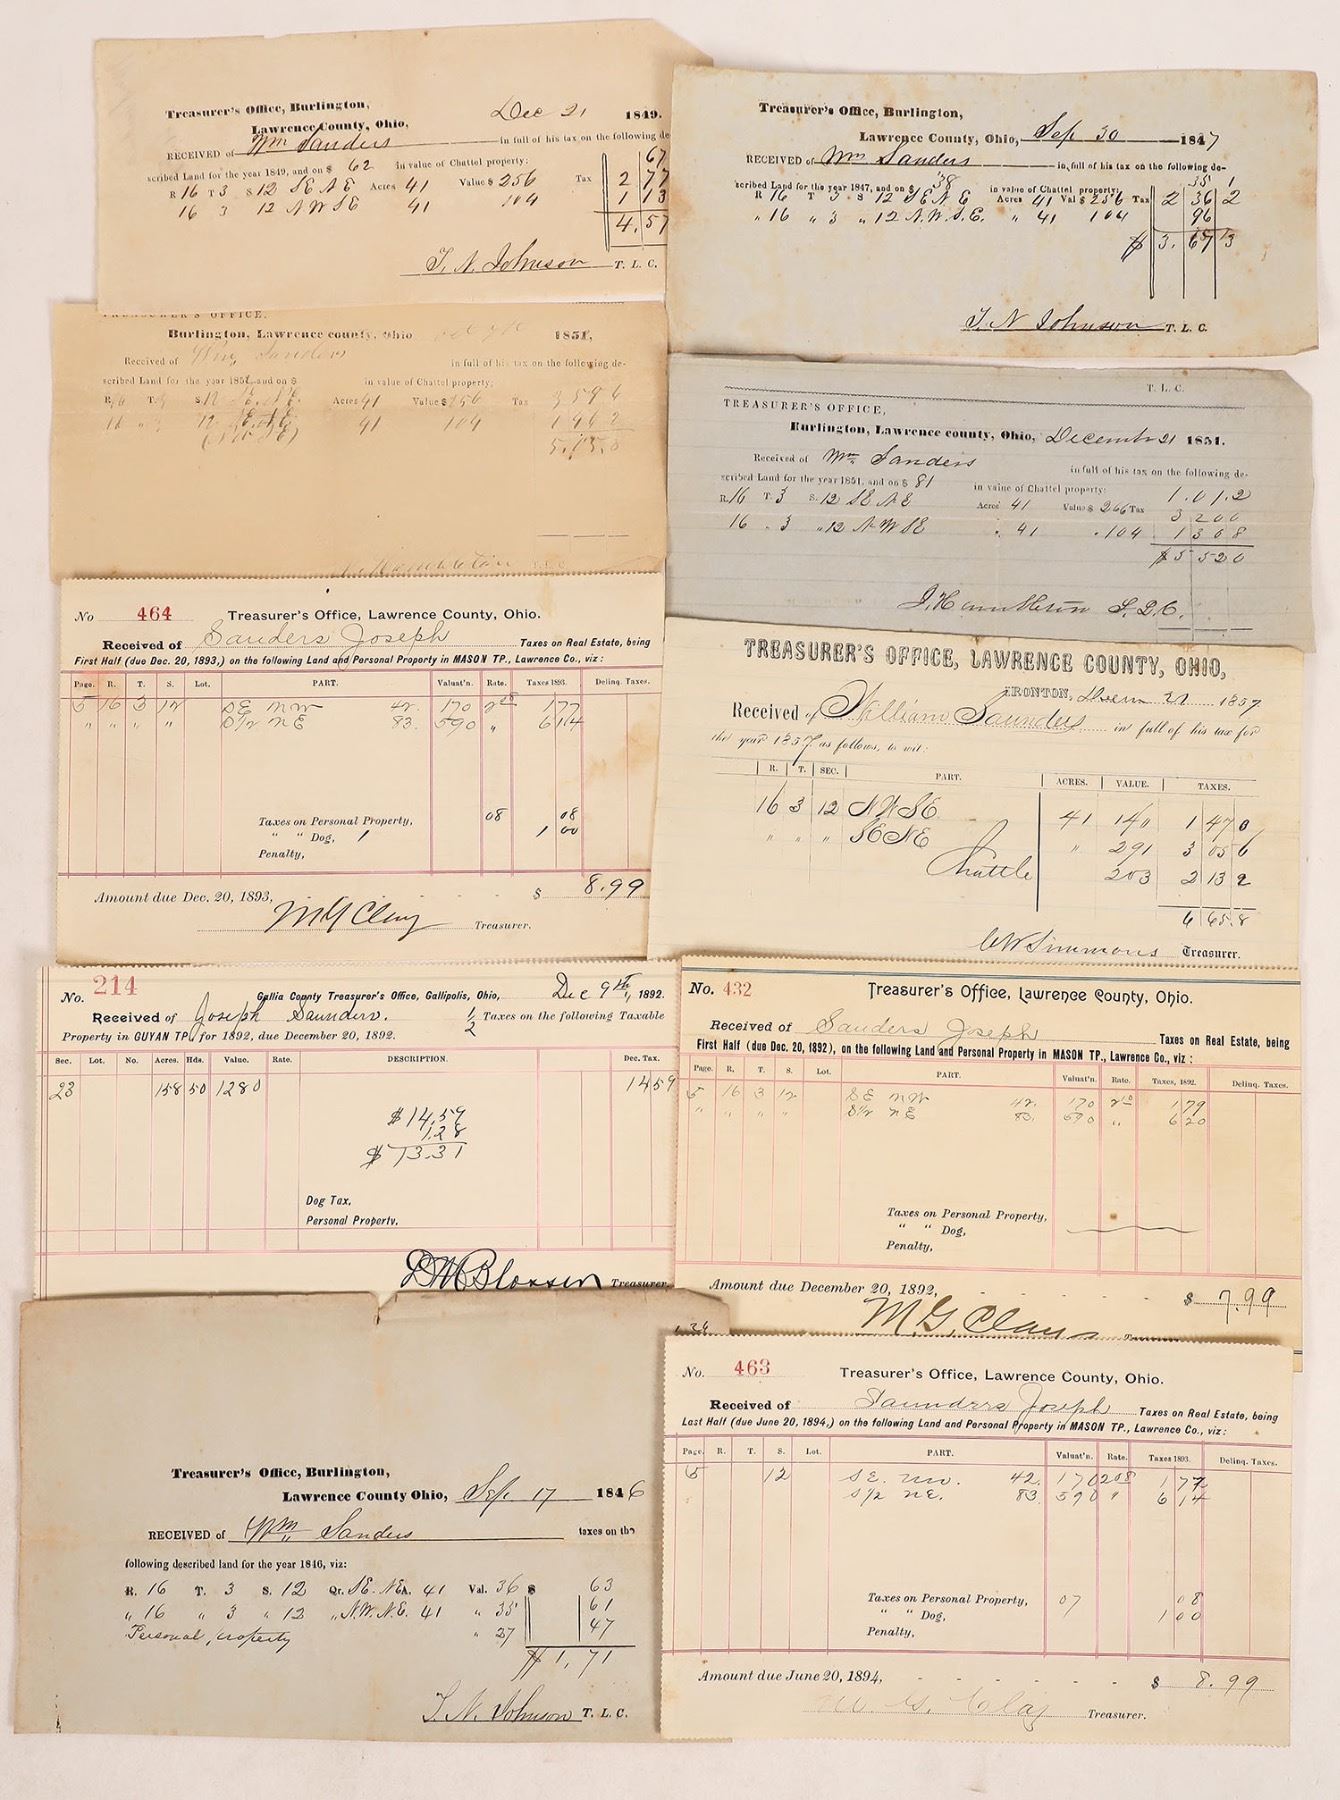 Treasurer's Office, Burlington,
Lawrence County, Ohio, Dec 21 1849.
RECEIVED of Wm Sanders in full of his tax on the following de-
scribed Land for the year 1849, and on $ 62 in value of Chattel property: 67
R 16 T 3 S 12 SE NE Acres 41 Value $ 256 Tax 2 77
16 3 12 NW SE 41 104 1 13
4.57
T. N. Johnson T. L. C.
Treasurer's Office, Burlington,
Lawrence County, Ohio, Sep 30 1847
RECEIVED of Wm Sanders in full of his tax on the following de-
scribed Land for the year 1847, and on $ 38 in value of Chattel property: 35 1
R 16 T 3 S 12 SE NE Acres 41 Val $ 256 Tax 2 36 2
" 16 " 3 " 12 N.W. S.E. " 41 104 96
$ 3. 67 3
T. N. Johnson T. L. C.
TREASURER'S OFFICE.
Burlington, Lawrence county, Ohio 1851,
Received of Wm Sanders in full of his tax on the following de-
scribed Land for the year 1851, and on $ in value of Chattel property;
R 16 T. 3 S. 12 S.E. N.E. Acres 41 Value $ 256 Tax
16 3 12 (N.W. S.E.) 41 104
Hambleton
T. L. C.
TREASURER'S OFFICE,
Burlington, Lawrence county, Ohio, December 21 1851.
Received of Wm Sanders in full of his tax on the following de-
scribed Land for the year 1851, and on $ 81 in value of Chattel property: 1.01.2
R. 16 T. 3 S. 12 SE NE Acres 41 Value $ 266 Tax 3 200
16 " 3 " 12 NW SE " 41 " 104 1 308
$5 520
J. Hambleton T. L. C.
No 464 Treasurer's Office, Lawrence County, Ohio.
Received of Sanders Joseph Taxes on Real Estate, being
First Half (due Dec. 20, 1893,) on the following Land and Personal Property in MASON TP., Lawrence Co., viz:
Page. R. T. S. Lot. PART. Valuat'n. Rate. Taxes 1893. Delinq. Taxes.
5 16 3 12 SE NW 42. 170 1 77
" " " " S/2 NE 83. 590 " 6 14
Taxes on Personal Property, 08 08
" " Dog, 1 1 00
Penalty,
Amount due Dec. 20, 1893, $ 8.99
M G Clay Treasurer.
TREASURER'S OFFICE, LAWRENCE COUNTY, OHIO,
IRONTON, 1857
Received of William Saunders in full of his tax for
the year 1857, as follows, to wit:
R. T. SEC. PART. ACRES. VALUE. TAXES.
16 3 12 NW SE 41 140 1 47 0
" " " SE NE " 291 3 05 6
Chattle 203 2 13 2
6 65.8
C W Simmons Treasurer.
No. 214 Gallia County Treasurer's Office, Gallipolis, Ohio, Dec 9th, 1892.
Received of Joseph Saunders. 1/2 Taxes on the following Taxable
Property in GUYAN TP., for 1892, due December 20, 1892.
Sec. Lot. No. Acres. Hds. Value. Rate. DESCRIPTION. Dec. Tax.
23 158 50 1280 14 59
$14.59
1.28
$13.31
Dog Tax,
Personal Property.
Treasurer.
No. 432 Treasurer's Office, Lawrence County, Ohio.
Received of Sanders Joseph Taxes on Real Estate, being
First Half (due Dec. 20, 1892), on the following Land and Personal Property in MASON TP., Lawrence Co., viz:
Page. R. T. S. Lot. PART. Valuat'n. Rate. Taxes, 1892. Delinq. Taxes.
5 16 3 12 SE NW 42. 170 2 10 1 79
" " " " S/2 NE 83. 590 " 6 20
Taxes on Personal Property,
" " Dog,
Penalty,
Amount due December 20, 1892, $ 7.99
M. G. Clay
Treasurer's Office, Burlington,
Lawrence County Ohio, Sep. 17 1846
RECEIVED of Wm Sanders taxes on the
following described land for the year 1846, viz:
R. 16 T. 3 S. 12 Qr. SE. NE A. 41 Val. 36 $ 63
" 16 " 3 " 12 " N.W. N.E. 41 " 35 61
Personal property " 27 47
$1,71
T. N. Johnson T. L. C.
No. 463 Treasurer's Office, Lawrence County, Ohio.
Received of Saunders Joseph Taxes on Real Estate, being
Last Half (due June 20, 1894,) on the following Land and Personal Property in MASON TP., Lawrence Co., viz:
Page. R. T. S. Lot. PART. Valuat'n. Rate. Taxes 1893. Delinq. Taxes.
5 12 SE. NW. 42. 170 208 1 77
S/2 NE. 83. 590 " 6 14
Taxes on Personal Property, 07 08
" " Dog, 1 00
Penalty,
Amount due June 20, 1894, $ 8.99
M. G. Clay Treasurer.